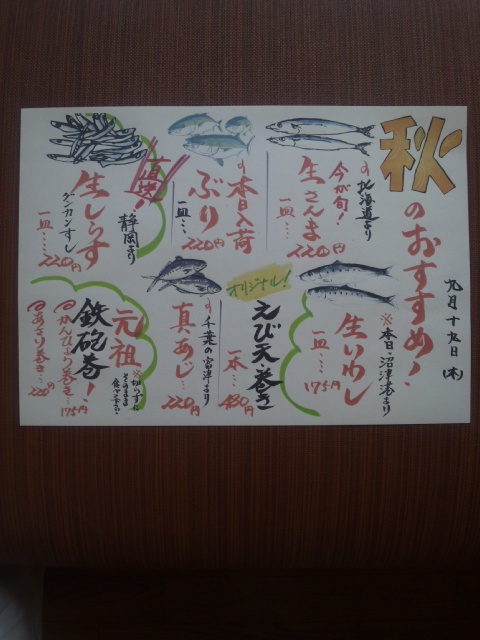 秋
のおすすめ!
九月十九日(木)
北海道より
今が旬!
生さんま
一皿… 220円
本日入荷
ぶり
一皿… 220円
直送!
静岡より
生しらす
グンカンすし
一皿…… 220円
※本日、沼津港より
生いわし
一皿… 175円
オリジナル!
えび天巻き
一本… 430円
千葉の富津より
真あじ…
220円
元祖
※切らずに
そのまま
食べて下さい
鉄砲巻!
かんぴょう巻き… 175円
あさり巻き… 220円